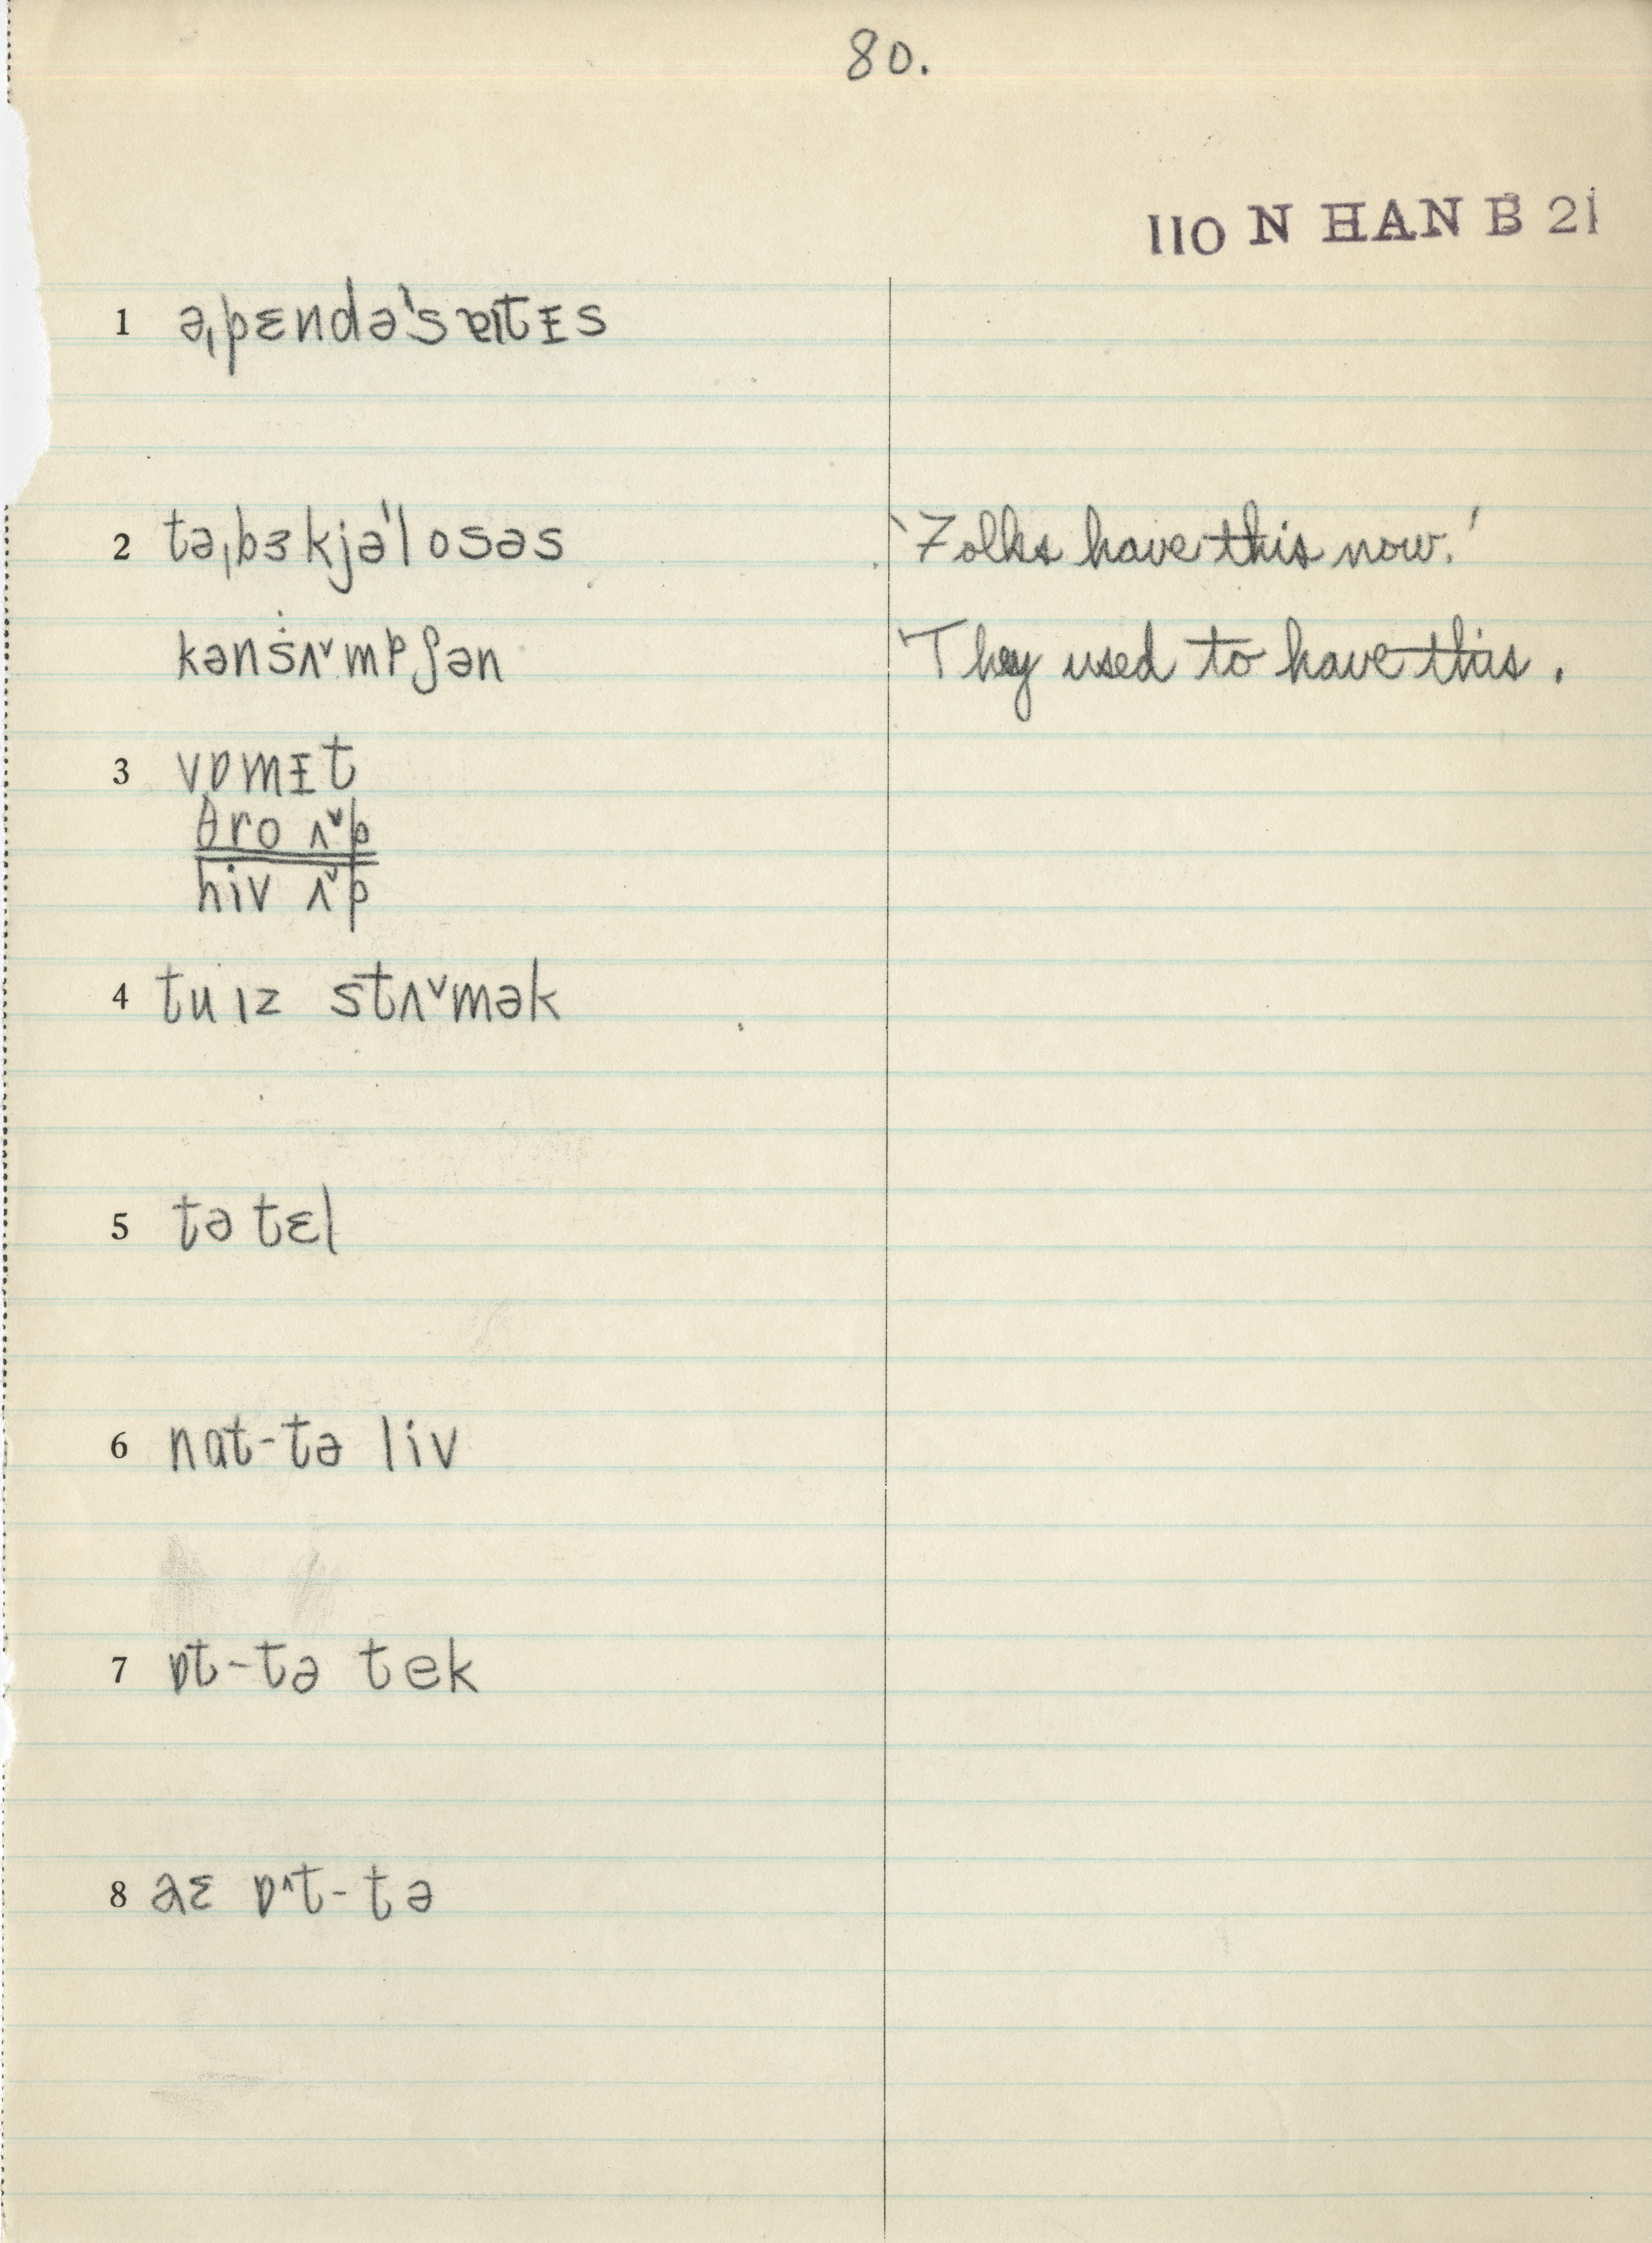 80.
110 N HAN B 21
1 əˌpɛndəˈsɐɪtᵻs
2 təˌbɜkjəˈlosəs 'Folks have this now.'
kənṡʌ˅mpʃən 'They used to have this.
3 vɒmᵻt
θro ʌ˅p
hiv ʌ˅p
4 tu ɪz stʌ˅mək
5 tə tɛl
6 nat-tə liv
7 ɒt-tə tek
8 aɛ ɒ˄t-tə